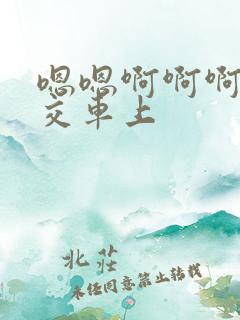 嗯嗯啊啊啊
交车上
北莊
未经同意禁止转载